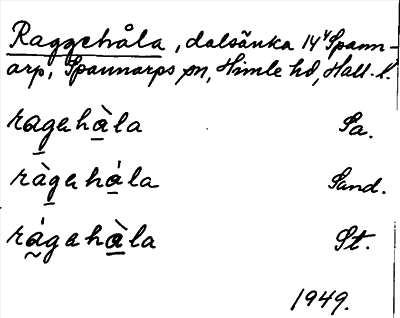 Raggehåla, dalsänka 14 Spann-
arp, Spannarps sn, Himle hd, Hall. l.
ragahàla Sa.
ràgahála Sand.
rágahàla St.
1949.